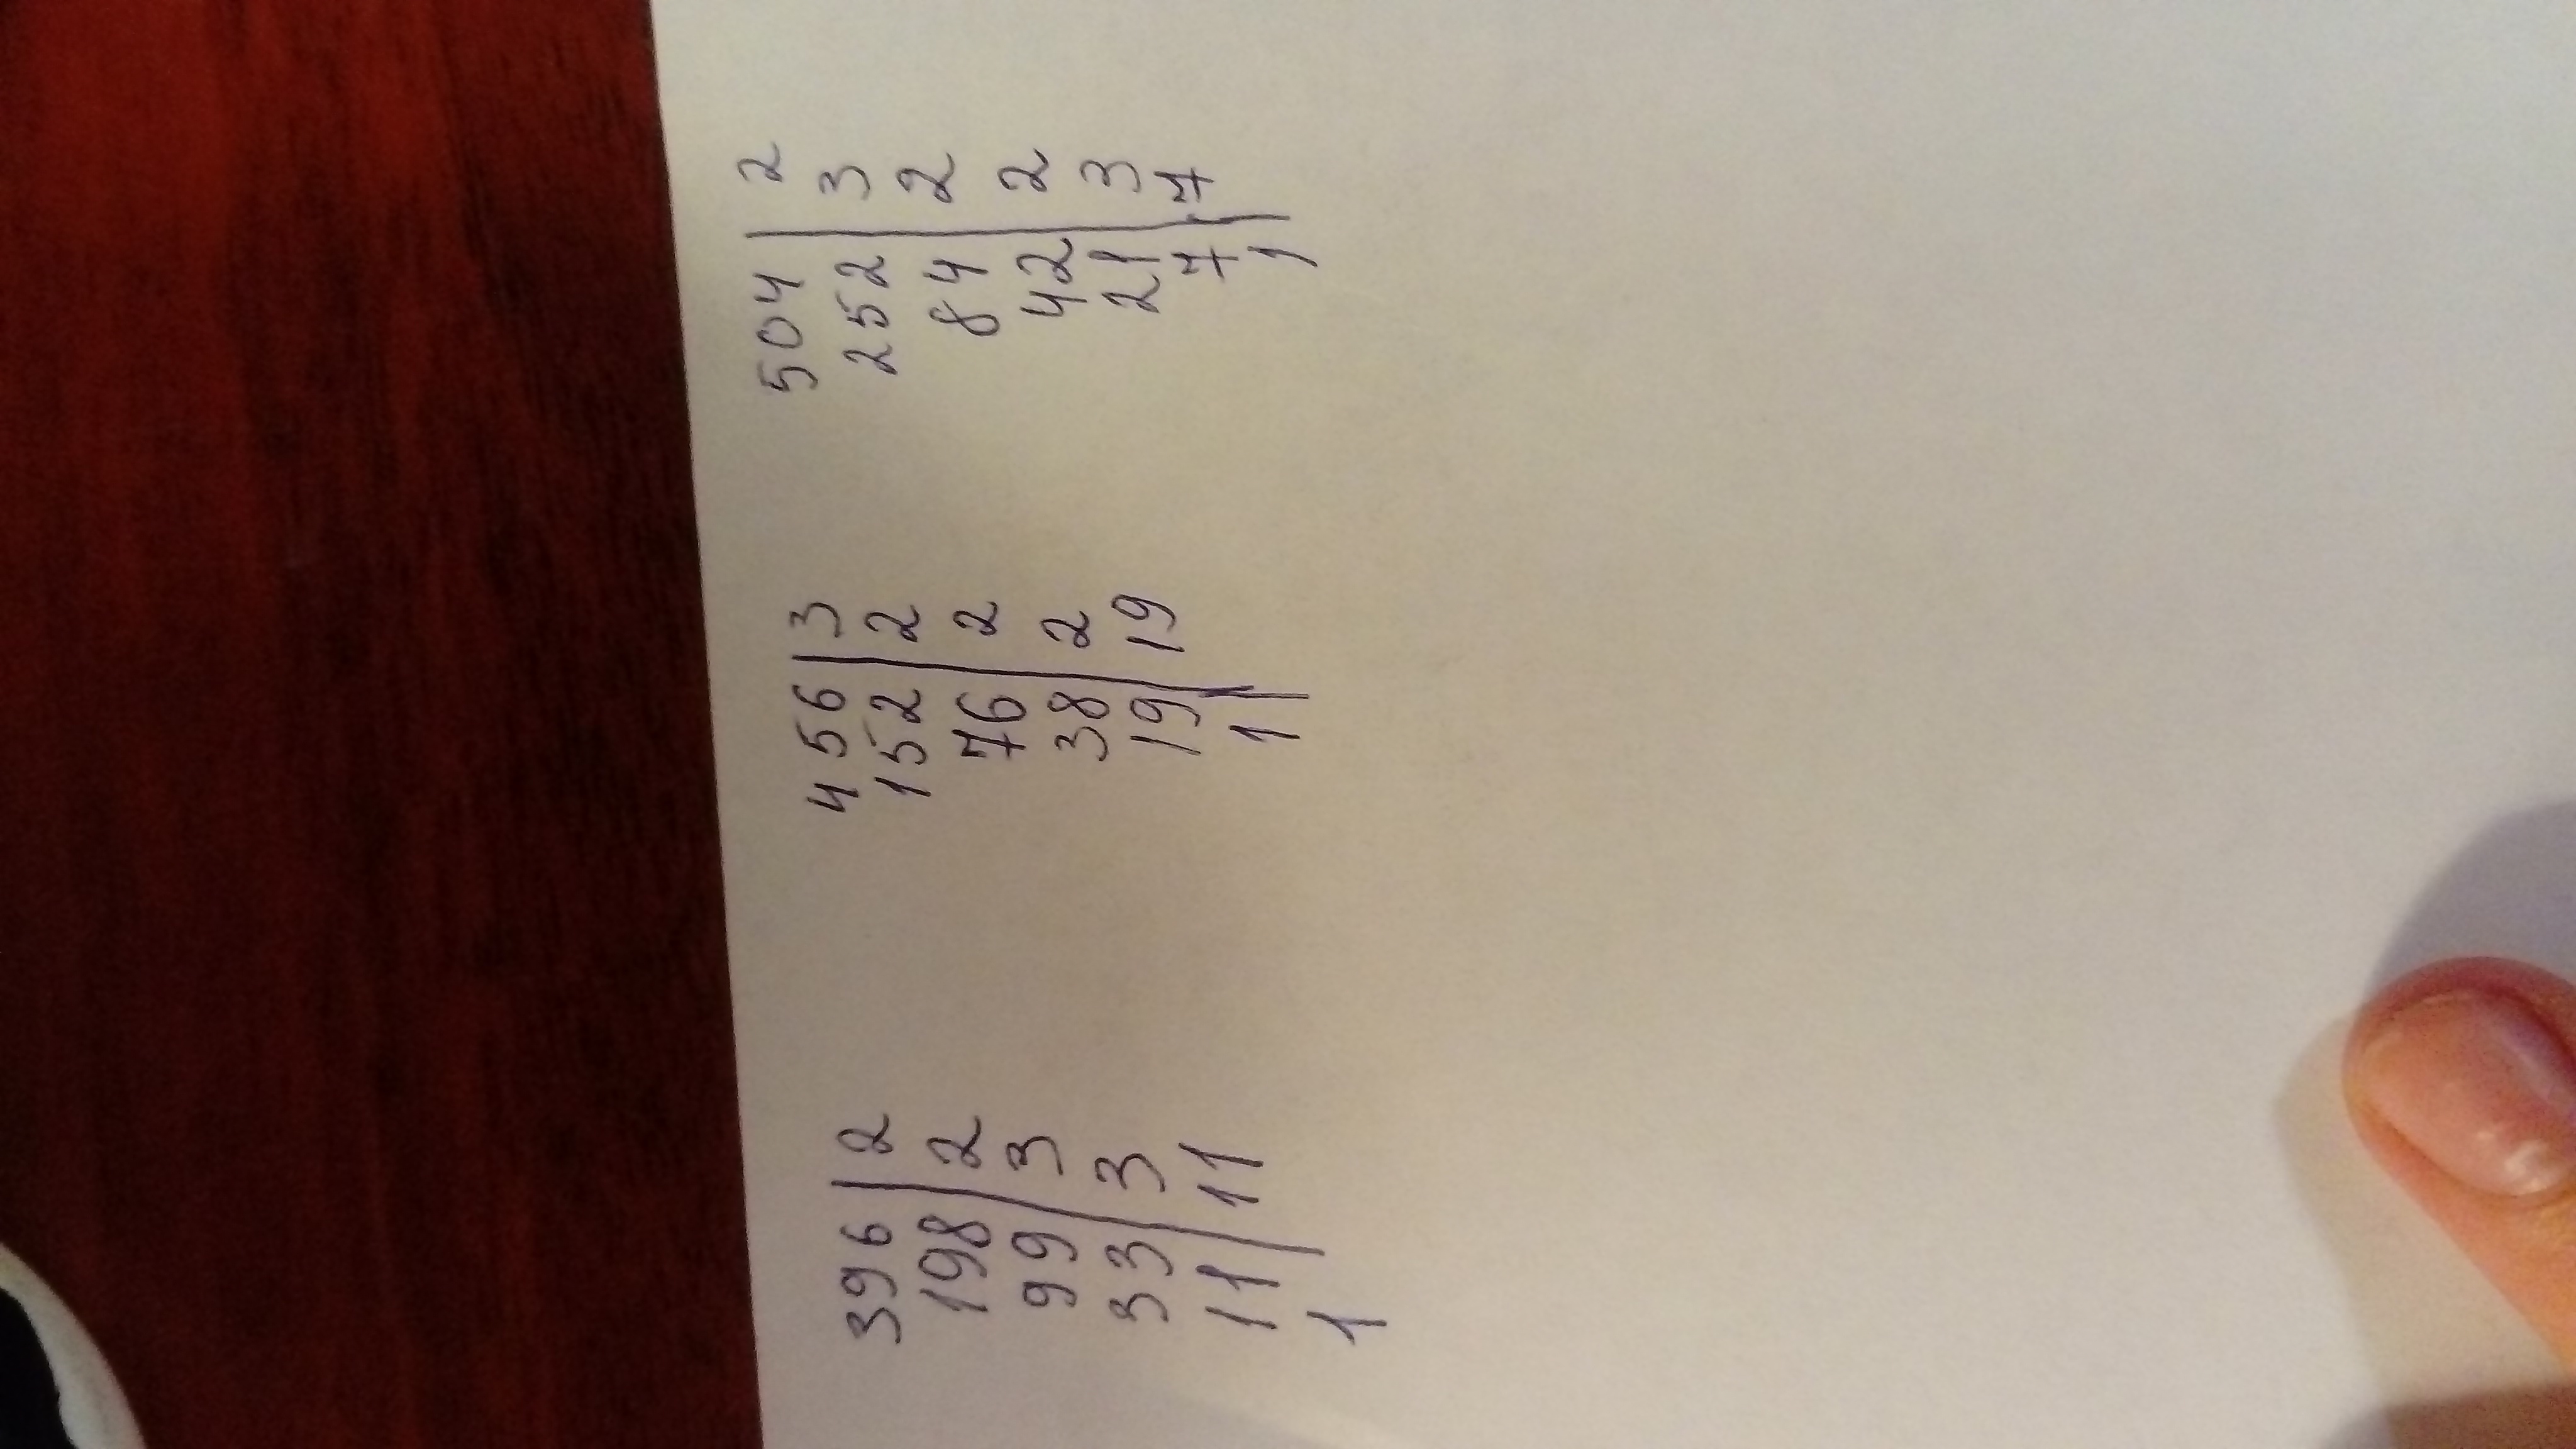 396 | 2
198 | 2
99 | 3
33 | 3
11 | 11
1
456 | 3
152 | 2
76 | 2
38 | 2
19 | 19
1
504 | 2
252 | 3
84 | 2
42 | 2
21 | 3
7 | 7
1